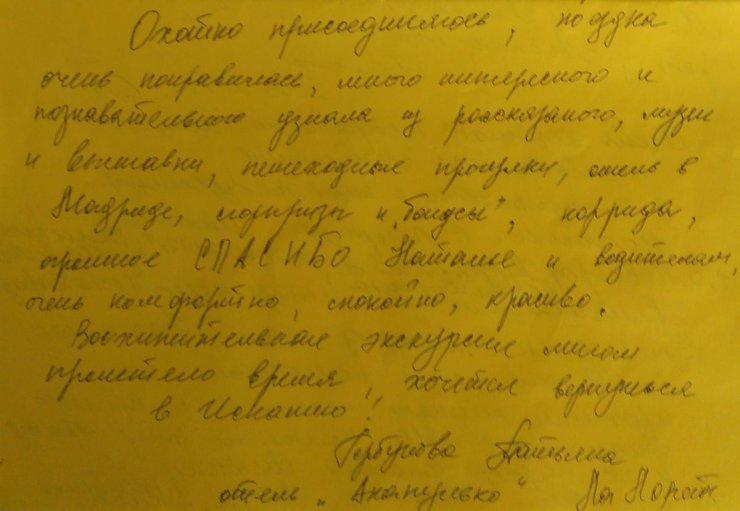 Охотно присоединяюсь, поездка
очень понравилась, много интересного и
познавательного узнала из рассказанного, музеи
и выставки, пешеходные прогулки, отель в
Мадриде, сюрпризы и „бонусы", коррида,
огромное СПАСИБО Наталье и водителям,
очень комфортно, спокойно, красиво.
Восхитительная экскурсия мигом
пролетело время, хочется вернуться
в Испанию!
Татьяна
отель „Акапулько"